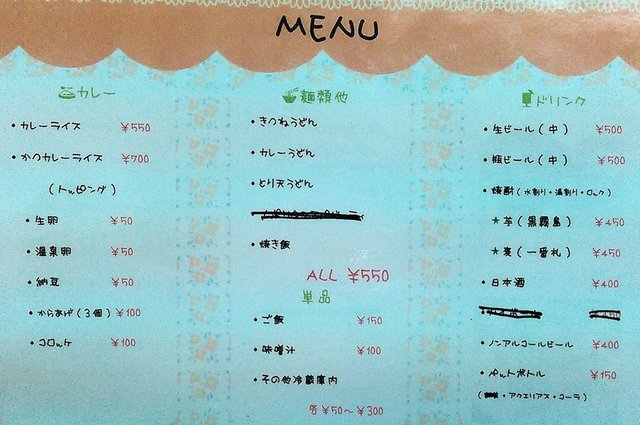 MENU
カレー
・カレーライス ¥550
・かつカレーライス ¥700
(トッピング)
・生卵 ¥50
・温泉卵 ¥50
・納豆 ¥50
・からあげ(3個) ¥100
・コロッケ ¥100
麺類他
・きつねうどん
・カレーうどん
・とり天うどん
・焼き飯
ALL ¥550
単品
・ご飯 ¥150
・味噌汁 ¥100
・その他冷蔵庫内
各¥50〜¥300
ドリンク
・生ビール(中) ¥500
・瓶ビール(中) ¥500
・焼酎(水割り・湯割り・ロック)
★芋(黒霧島) ¥450
★麦(一番札) ¥450
・日本酒 ¥400
・ノンアルコールビール ¥400
・ペットボトル ¥150
(・アクエリアス・コーラ)